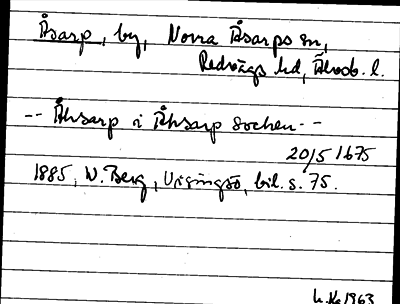 Åsarp, by, Norra Åsarps sn,
Redvägs hd, Älvsb. l.
-- Åhsarp i Åhsarp Sochen --
20/5 1675
1885, W. Berg, Visingsö, bil. s. 75.
1963